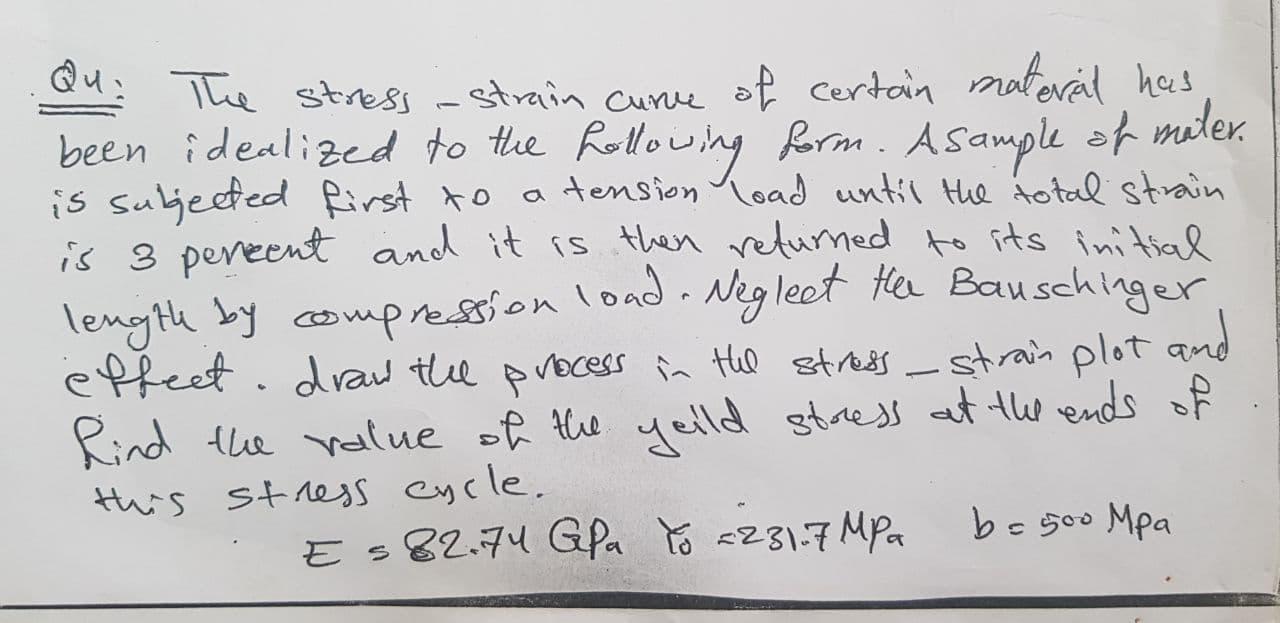 Qu: The stress - strain curve of certain material has
been idealized to the following form. A sample of mater.
is subjected first to a tension load until the total strain
is 3 pereent and it is then returned to its initial
length by compression load. Neglect the Bauschinger
effect. draw the process in the stress - strain plot and
find the value of the yeild stress at the ends of
this stress cycle.
E = 82.74 GPa Yo = 231.7 MPa b = 500 Mpa